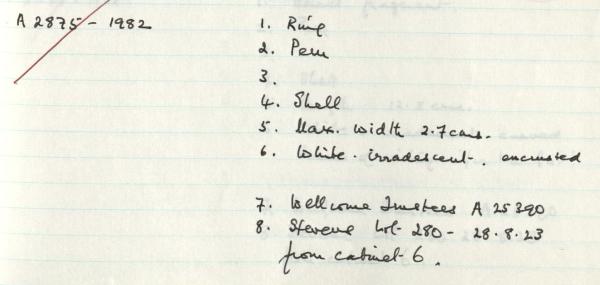 A 2875 - 1982
1. Ring
2. Peru
3.
4. Shell
5. Max. width 2.7cms.
6. White. irradescent. encrusted
7. Wellcome Trustees A 25390
8. Stevens Lot 280 - 28.8.23
from cabinet 6.